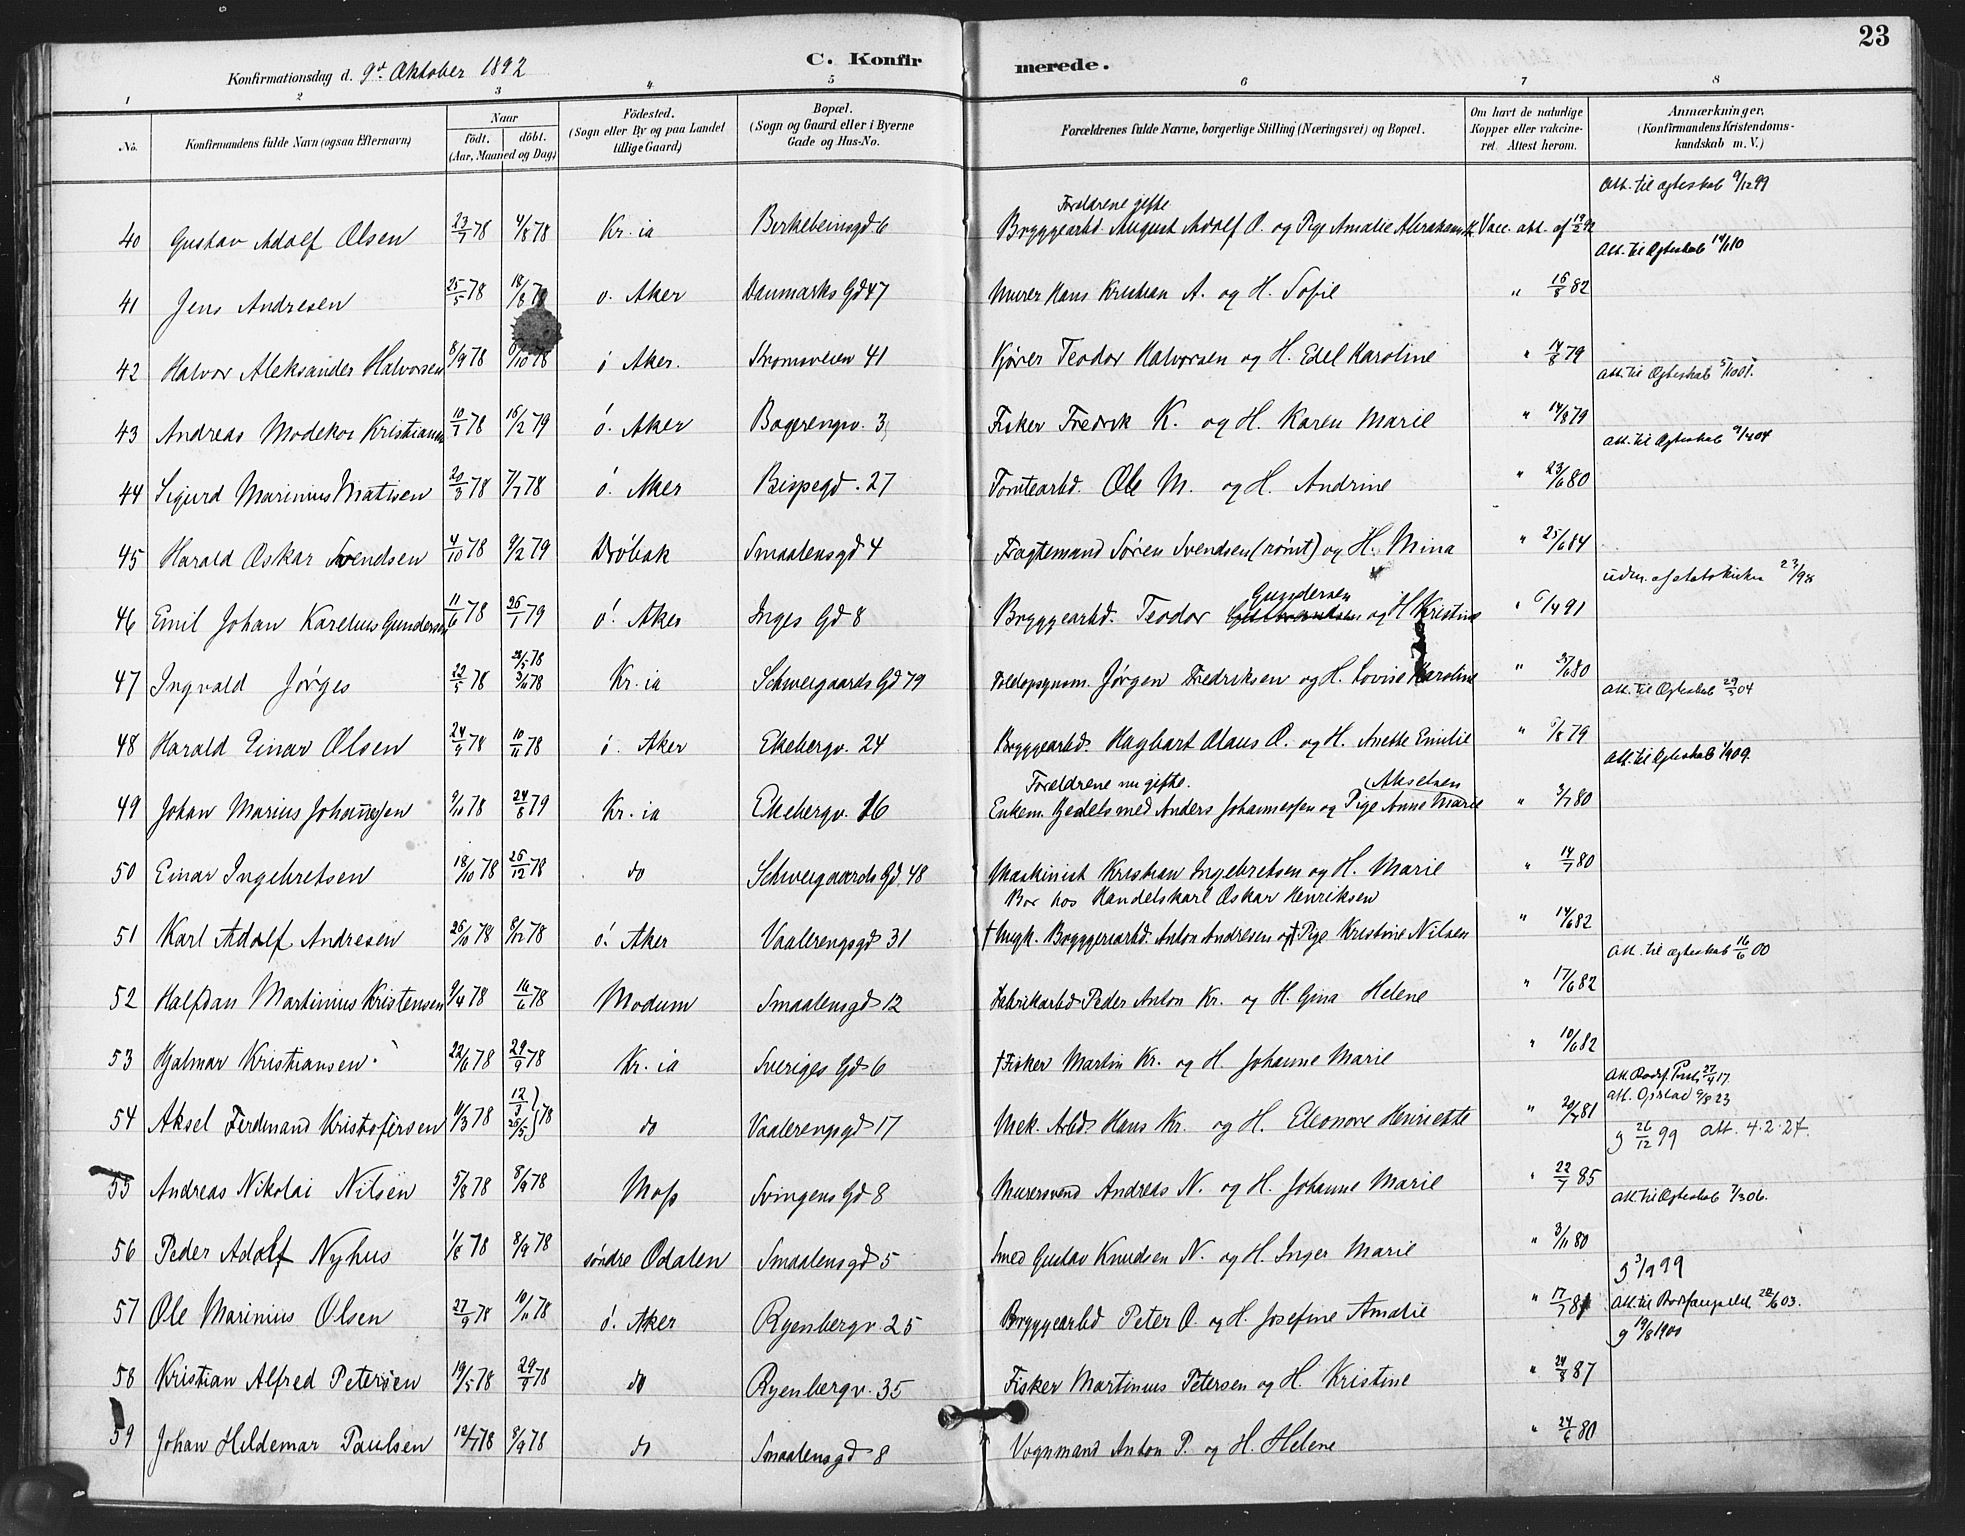 23
Konfirmationsdag d. 9de Oktober 1892
C. Konfirmerede.
1 2 3 4 5 6 7 8
No.
Konfirmandens fulde Navn (ogsaa Efternavn)
Naar
födt. döbt.
(Aar, Maaned og Dag)
Födested.
(Sogn eller By og paa Landet
tillige Gaard)
Bopæl.
(Sogn og Gaard eller i Byerne
Gade og Hus-No.
Forældrenes fulde Navne, borgerlige Stilling (Næringsvei) og Bopæl.
Om havt de naturlige
Kopper eller vakcine-
ret. Attest herom.
Anmærkninger.
(Konfirmandens Kristendoms-
kundskab m. V.)
Att. til Ægteskab 9/12 99
Forældrene gifte
40 Gustav Adolf Olsen 23/7 78 4/8 78 Kr.ia Birkebeinsgd 6 Bryggearbd. August Adolf O. og Pige Amalie Abrahams Vacc. att. af
Att. til Ægteskab
41 Jens Andresen 25/5 78 18/8 78 ö. Aker Danmarks Gd 47 Murer Hans Kristian A. og H. Sofie " 16/8 82
42 Halvor Aleksander Halvorsen 8/9 78 /10 78 ö Aker. Strømsveien 41 Kjører Teodor Halvorsen og H. Edel Karoline " 14/8 79
Att. til Ægteskab
43 Andreas Modekor Kristians 10/7 78 16/2 79 ö. Aker Bøgerengv. 3 Fisker Fredrik K. og H. Karen Marie " 14/8 79
Att. til Ægteskab 9/4 04
44 Sigurd Marinius Matisen 20/3 78 7/7 78 ö. Aker Bispegd. 27 Tomtearbd. Ole M. og H. Andrine " 23/6 80
45 Harald Oskar Svendsen 4/10 78 9/2 79 Dröbak Smaalensgd 4 Fragtemand Søren Svendsen (rømt) og H. Mina " 25/6 84
udm. af statskirken 23/ 98
Gundersen
46 Emil Johan Karelius Gundersen 11/6 78 26/1 79 ö. Aker Inges Gd 8 Bryggearbd. Teodor og H Kristine " 6/4 91
28/5 78
47 Ingvald Jørges 22/5 78 3/6 78 Kr.ia Schweigaards Gd 79 Toldopsynsm. Jørgen Fredriksen og H. Lovise Karoline " 25/6 80
Att. til Ægteskab 29/5 04
48 Harald Einar Olsen 24/9 78 10/11 78 ö. Aker Ekebergv. 24 Bryggearbd. Hagbart Olaus O. og H. Anette Emilie " /8 79
Att. til Ægteskab 1909.
Forældrene nu gifte. Akselsen
49 Johan Marius Johannesen 9/10 78 24/8 79 Kr.ia Ekebergv. 16 Enkem. Gjedelsmed Anders Johannessen og Pige Anne Marie " 3/7 80
50 Einar Ingebretsen 18/10 78 26/12 78 do Schweigaards Gd. 48 Maskinist Kristian Ingebretsen og H. Marie " 14/7 80
Bor hos Handelskarl Oskar Henriksen
51 Karl Adolf Andresen 26/10 78 8/12 78 ö. Aker Vaalerengsgd 31 † Ungk. Bryggeriarbd. Anton Andresen og † Pige Kristine Nilsen " 14/6 82
Att. til Ægteskab 16/6 00
52 Halfdan Martinius Kristensen 9/4 78 16/6 78 Modum Smaalensgd 12 Fabrikarbd. Peder Anton Kr. og H. Gina Helene " 17/6 82
53 Hjalmar Kristiansen 22/6 78 29/9 78 Kr.ia Sveriges Gd 6 † Fisker Martin Kr. og H. Johanne Marie " 10/6 82
Att. Bodsf. 27/4 17.
Att. 9/8 23
54 Aksel Ferdinand Kristofersen 11/3 78 12/3 26/5 } 78 do Vaalerengsgd 17 Mek. Arbd. Hans Kr. og H. Eleonore Henriette " 20/7 81
g 26/12 99 Att. 4.2.24.
55 Andreas Nikolai Nilsen 5/8 78 8/9 78 Moss Svingens Gd 8 Murersvend Andreas N. og H. Johanne Marie " 22/7 85
Att. til Ægteskab 7/3 06.
56 Peder Adolf Nyhus 1/8 78 8/9 78 söndre Odalen Smaalensgd 5 Smed Gustav Knudsen N. og H. Inger Marie " 3/11 80
g 3/9 99
57 Ole Marinius Olsen 27/9 78 10/11 78 ö. Aker Ryenbergv. 25 Bryggearbd Peter O. og H. Josefine Amalie " 17/7 81 Att. til Bodsfængslet 22/6 03.
g 19/8 1900
58 Kristian Alfred Petersen 19/5 78 29/9 78 do Ryenbergv. 35 Fisker Martinius Petersen og H. Kristine " 24/8 87
59 Johan Hildemar Paulsen 12/7 78 8/9 78 do Smaalensgd 8 Vognmand Anton P. og H. Helene " 24/6 80